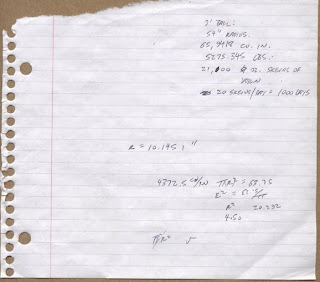 3' TALL:
54" RADIUS.
65,449.8 CU. IN.
5275.345 LBS.
21,000 OZ. SERVING OF
20 SERVING/DAY = 1000 DAYS
R = 10.145 1"
4372.5 πR² = 63.75
R² 20.232
4.50
πR² 5